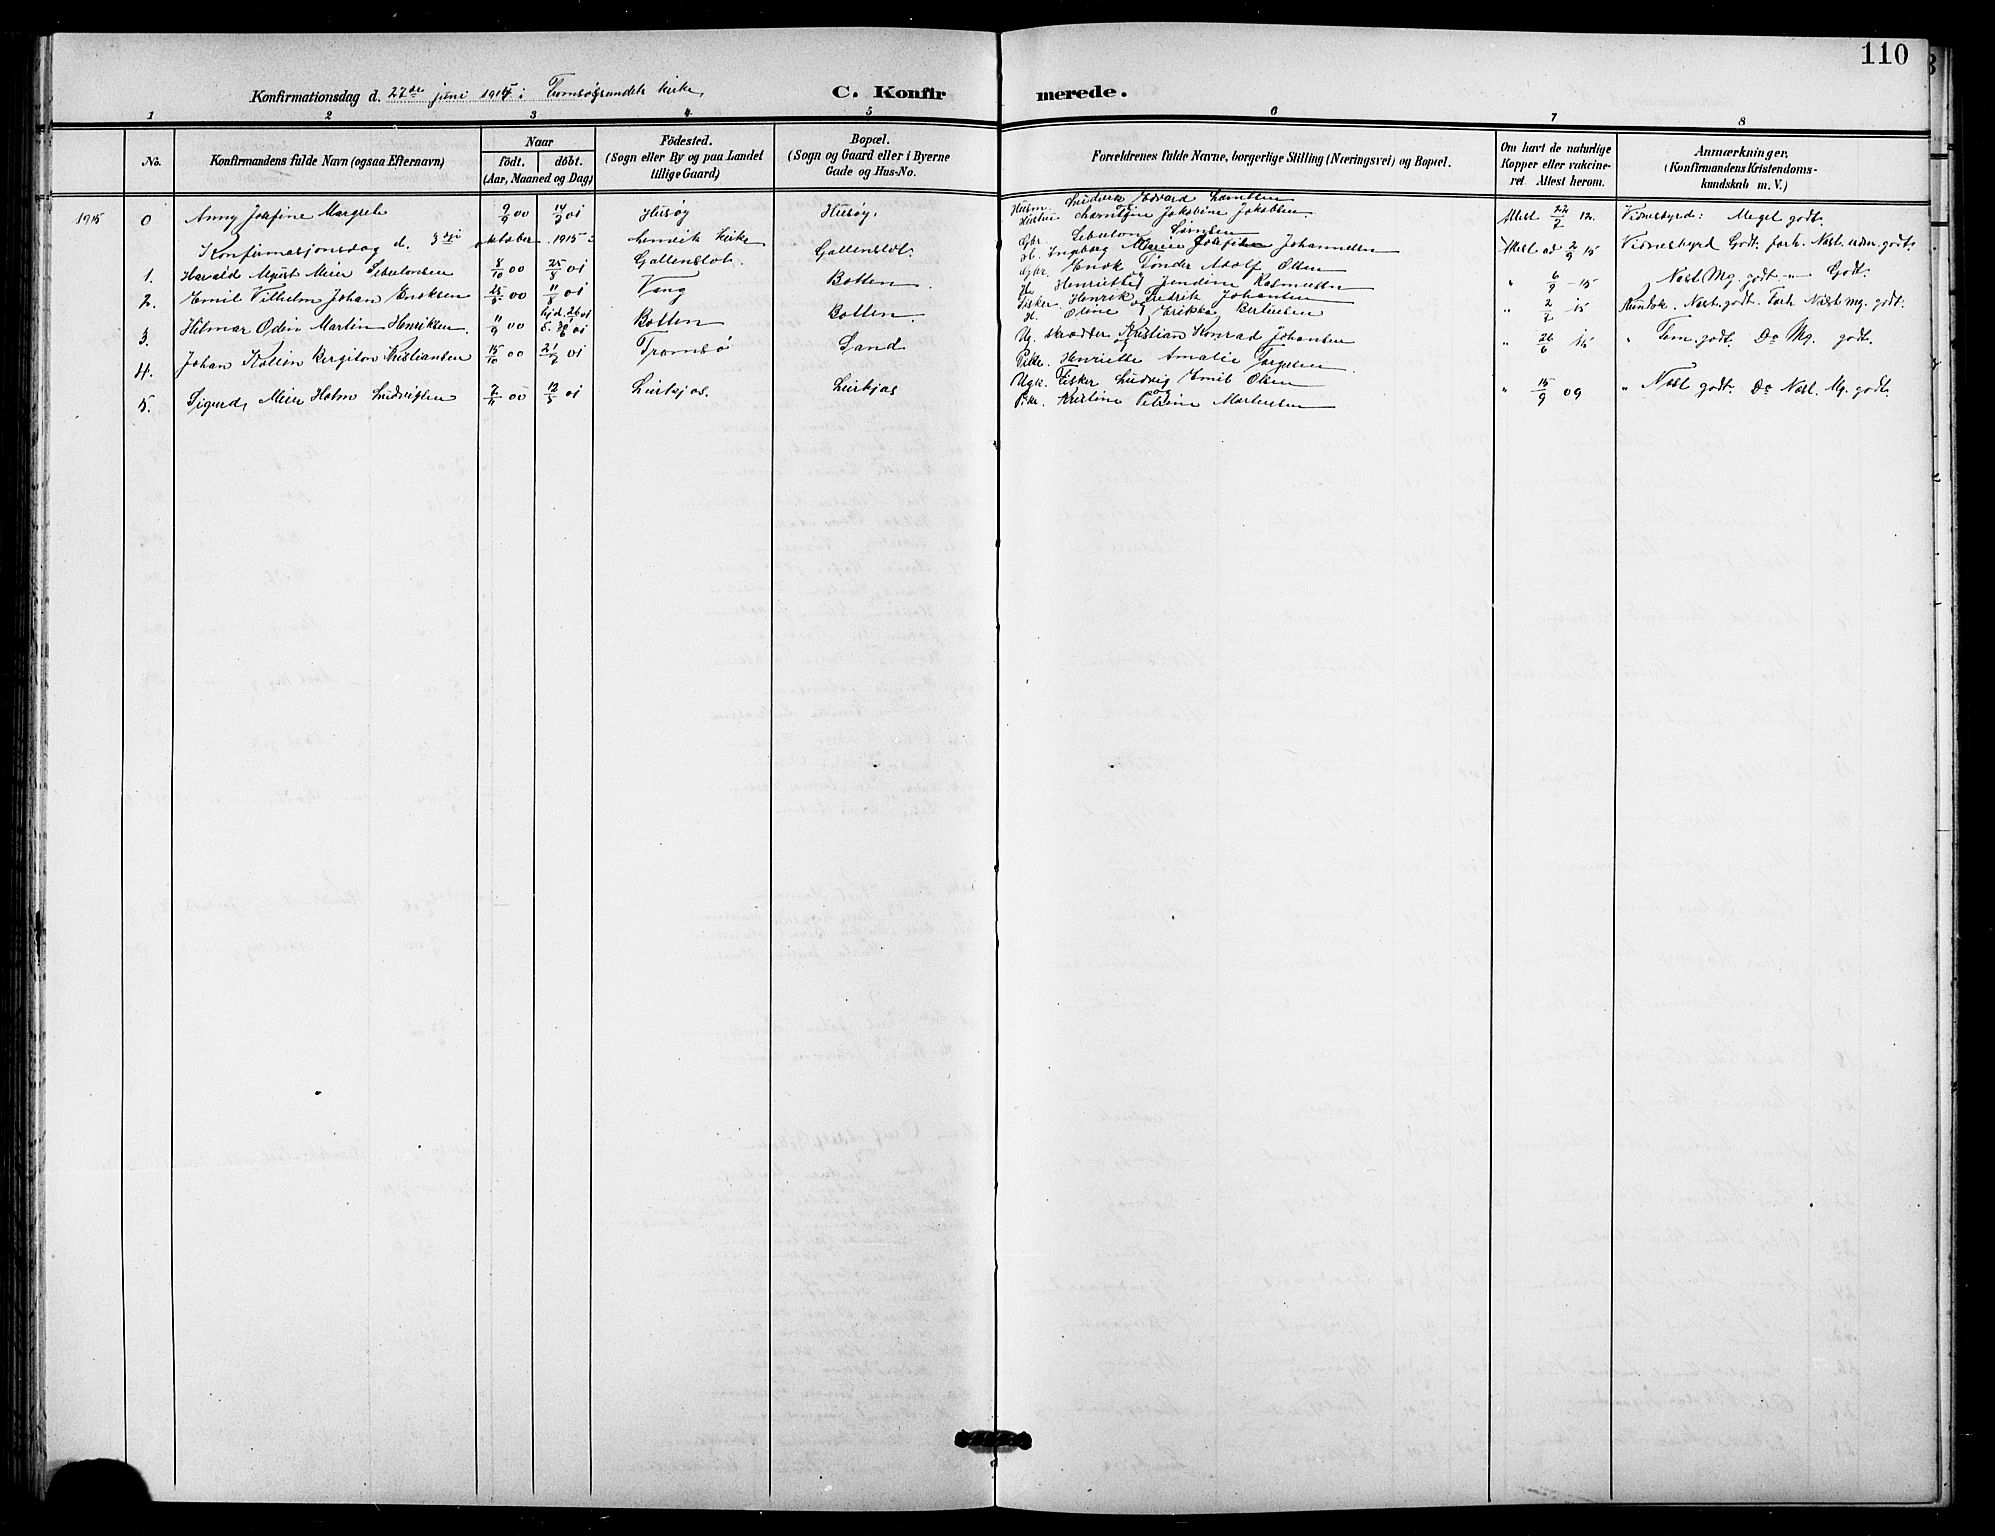 110
Konfirmationsdag d. 27de juni 1915 i Tromsøsundets kirke,
C. Konfirmerede.
1 2 3 4 5 6 7 8
No.
Konfirmandens fulde Navn (ogsaa Efternavn)
Naar
födt. döbt.
(Aar, Maaned og Dag)
Födested.
(Sogn eller By og paa Landet
tillige Gaard)
Bopæl.
(Sogn og Gaard eller i Byerne
Gade og Hus-No.
Forældrenes fulde Navne, borgerlige Stilling (Næringsvei) og Bopæl.
Om havt de naturlige
Kopper eller vakcine-
ret Attest herom.
Anmærkninger,
(Konfirmandens Kristendoms-
kundskab m. V.)
1915 0 Anny Josefine Margrete 9/9 00 14/7 01 Husøy Husøy. Husm. Ludvik Edvard
Hustru Jakobine Jakobsen Attest 22/2 12. Vidnesbyrd: Meget godt.
Konfirmasjonsdag d. 3dje oktober 1915 i Lenvik kirke
1. Harald Meier Sebulonsen 8/10 00 25/8 01 Gbr. Sebulon
H. Ingeborg Marie Josefine Johannesen Attest ad 2/9 15 Vidnesbyrd Godt.
2. Emil Vilhelm Johan Enoksen 25/5 00 11/8 01 Vang Botten. Gbr. Enok Tønder Adolf Olsen
H. Henriette Jendine Rasmussen " 6/9 - 15 Mg. godt " Godt.
3. Hilmar Odin Martin Henriksen 11/9 00 Botten Botten. Fisker Henrik Fredrik Johansen
H. Oline Erikka Bertensen " 2/7 15 Kundsk. Næst. godt. Forh. Næst mg. godt.
4. Johan Kolbin Bergiton Kristiansen 15/10 00 21/7 01 Tromsø Sand Ug. Skrædder Kristian Konrad Johansen
Pike. Henriette Amalie " 26/6 15 " Tem. godt. Do Mg. godt.
5. Sigurd Meier Holm Ludvigsen 7/11 00 12/5 01 Ugk. Fisker Ludvig Emil Olsen
Pike. Kristine Petrine Mortensen " 15/9 09 " Næst godt. Do Næst. Mg. godt.